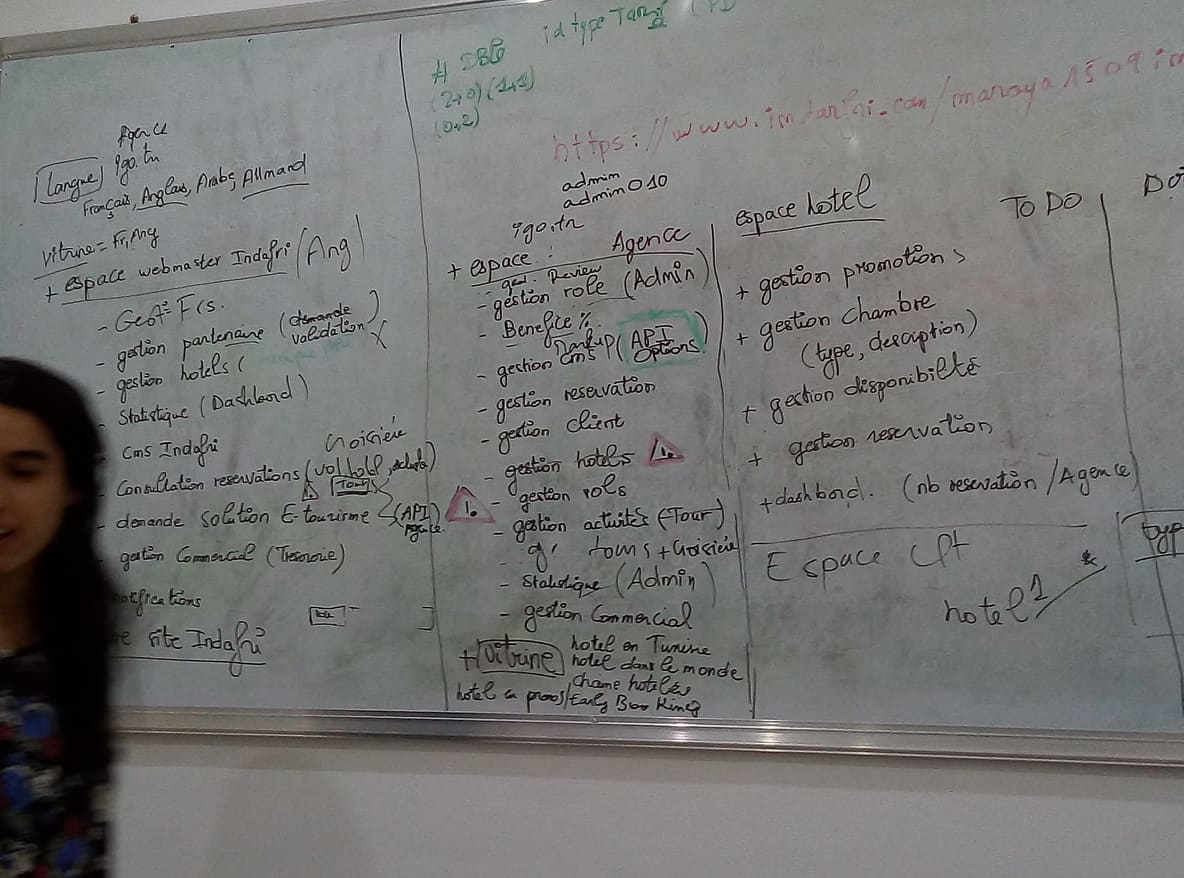 Agence
igo.tn
Langue
Français, Anglais, Arabe, Allmand
vitrine = Fr, Ang
+ espace webmaster Indafri (Ang)
- Gest° Fcs.
- gestion partenaire (demande validation)
- gestion hotels (
- Statistique (Dashbord)
- Cms Indafri
Croisière
- Consultation reservations (vol, hotel,
Tours
- demande solution E-tourisme (API)
Agence
gestion Commercial (Tresorerie)
notifications
site Indafri
# DBB
id type
(2,0) (1,1)
(0,2)
https://www.
admin
admin010
igo.tn
+ espace : Agence
- gest. Review
- gestion role (Admin)
- Benefice %
Markup
- gestion cms (API Options)
- gestion reservation
- gestion client
- gestion hotels
- gestion rols
- gestion activités (Tour)
- g° tours + Croisière
- Statistique (Admin)
- gestion Commercial
+ Vitrine
hotel en Tunisie
hotel dans le monde
chaine hotelés
hotel en promos/Early Booking
espace hotel
+ gestion promotions
+ gestion chambre
(type, description)
+ gestion disponibiltés
+ gestion reservation
+ dashbord. (nb reservation / Agence)
Espace Cpt
hotel 1
TO DO